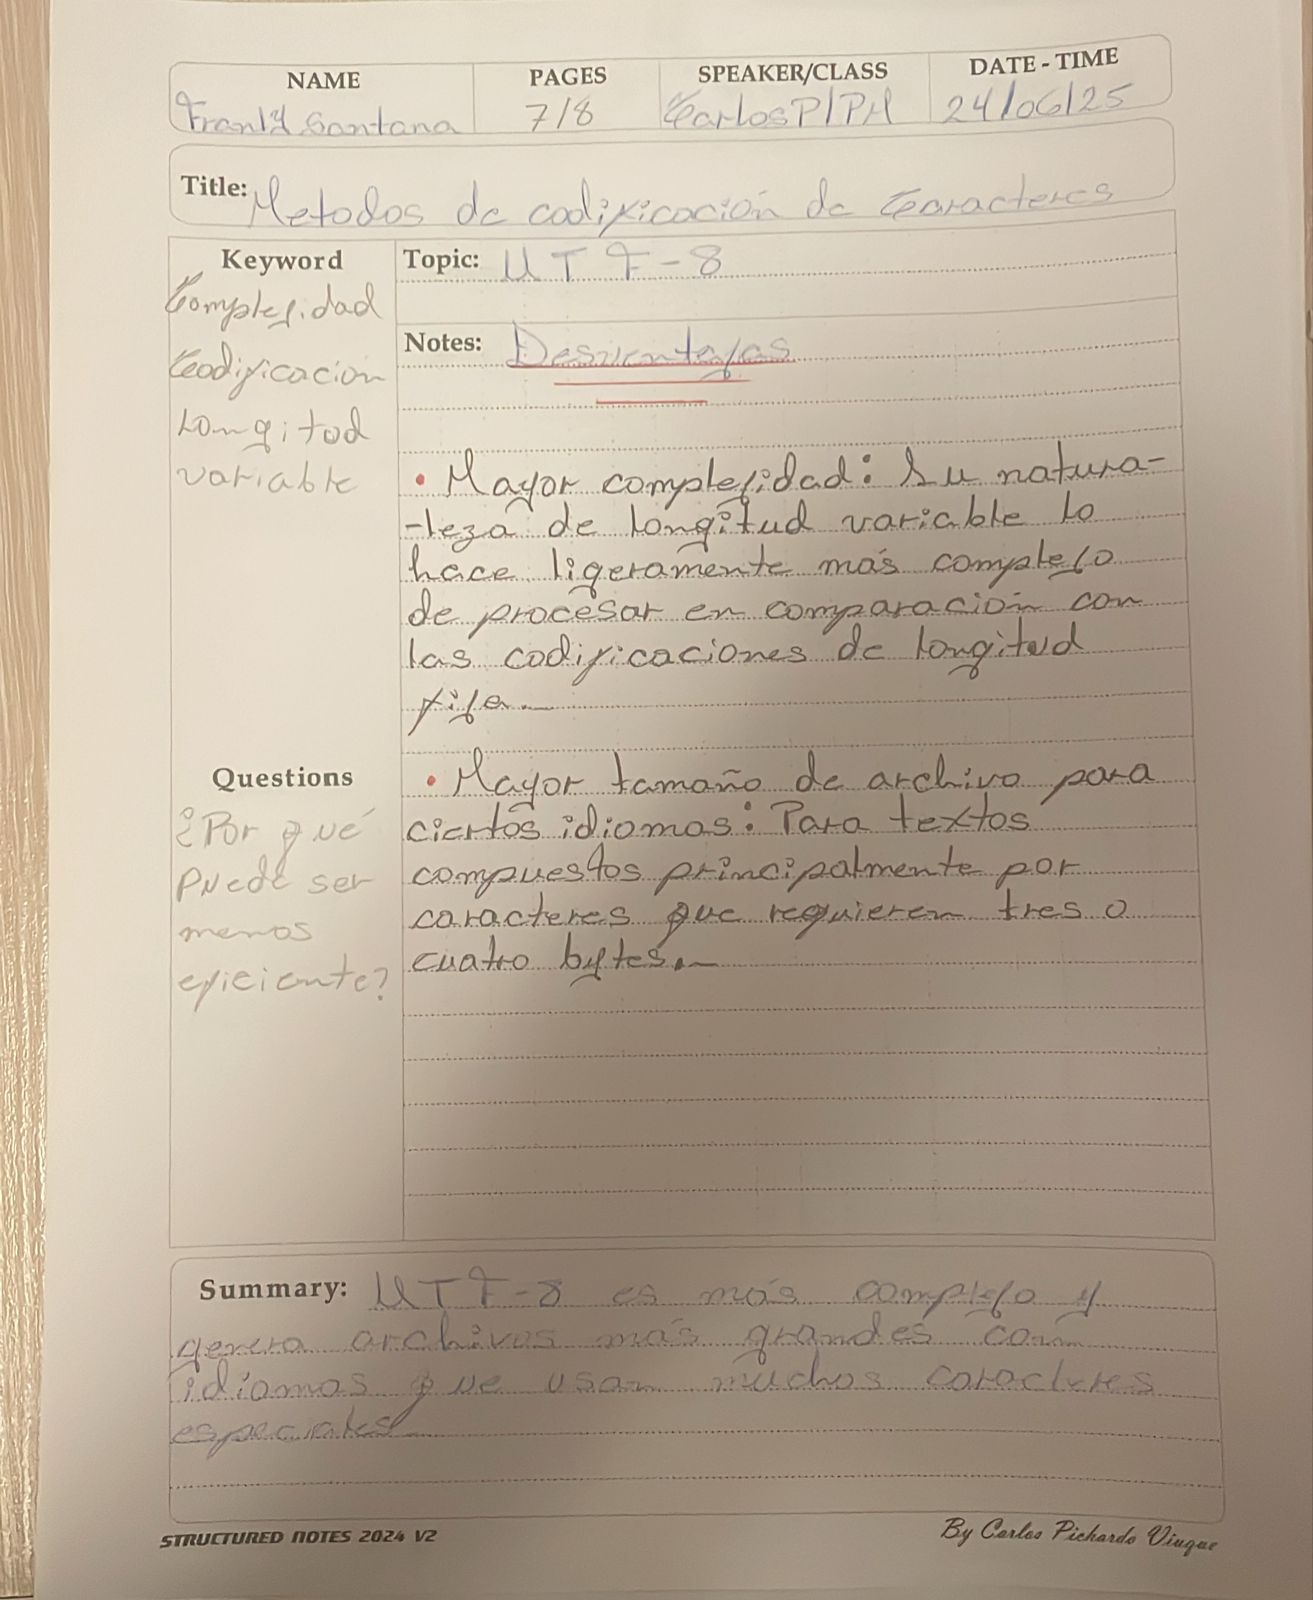 NAME PAGES SPEAKER/CLASS DATE - TIME
Franly Santana 7/8 CarlosP/PH 24/06/25
Title: Metodos de codificación de Caracteres
Keyword
Complejidad
Codificacion
Longitud
variable
Topic: UTF-8
Notes: Desventajas
• Mayor complejidad: Su natura-
-leza de longitud variable lo
hace ligeramente más complejo
de procesar en comparación con
las codificaciones de longitud
fija.
Questions
¿Por qué
Puede ser
menos
eficiente?
• Mayor tamaño de archivo para
ciertos idiomas: Para textos
compuestos principalmente por
caracteres que requieren tres o
cuatro bytes.
Summary: UTF-8 es más complejo y
genera archivos más grandes con
idiomas que usan muchos caracteres
especiales
STRUCTURED NOTES 2024 V2
By Carlos Pichardo Viuque